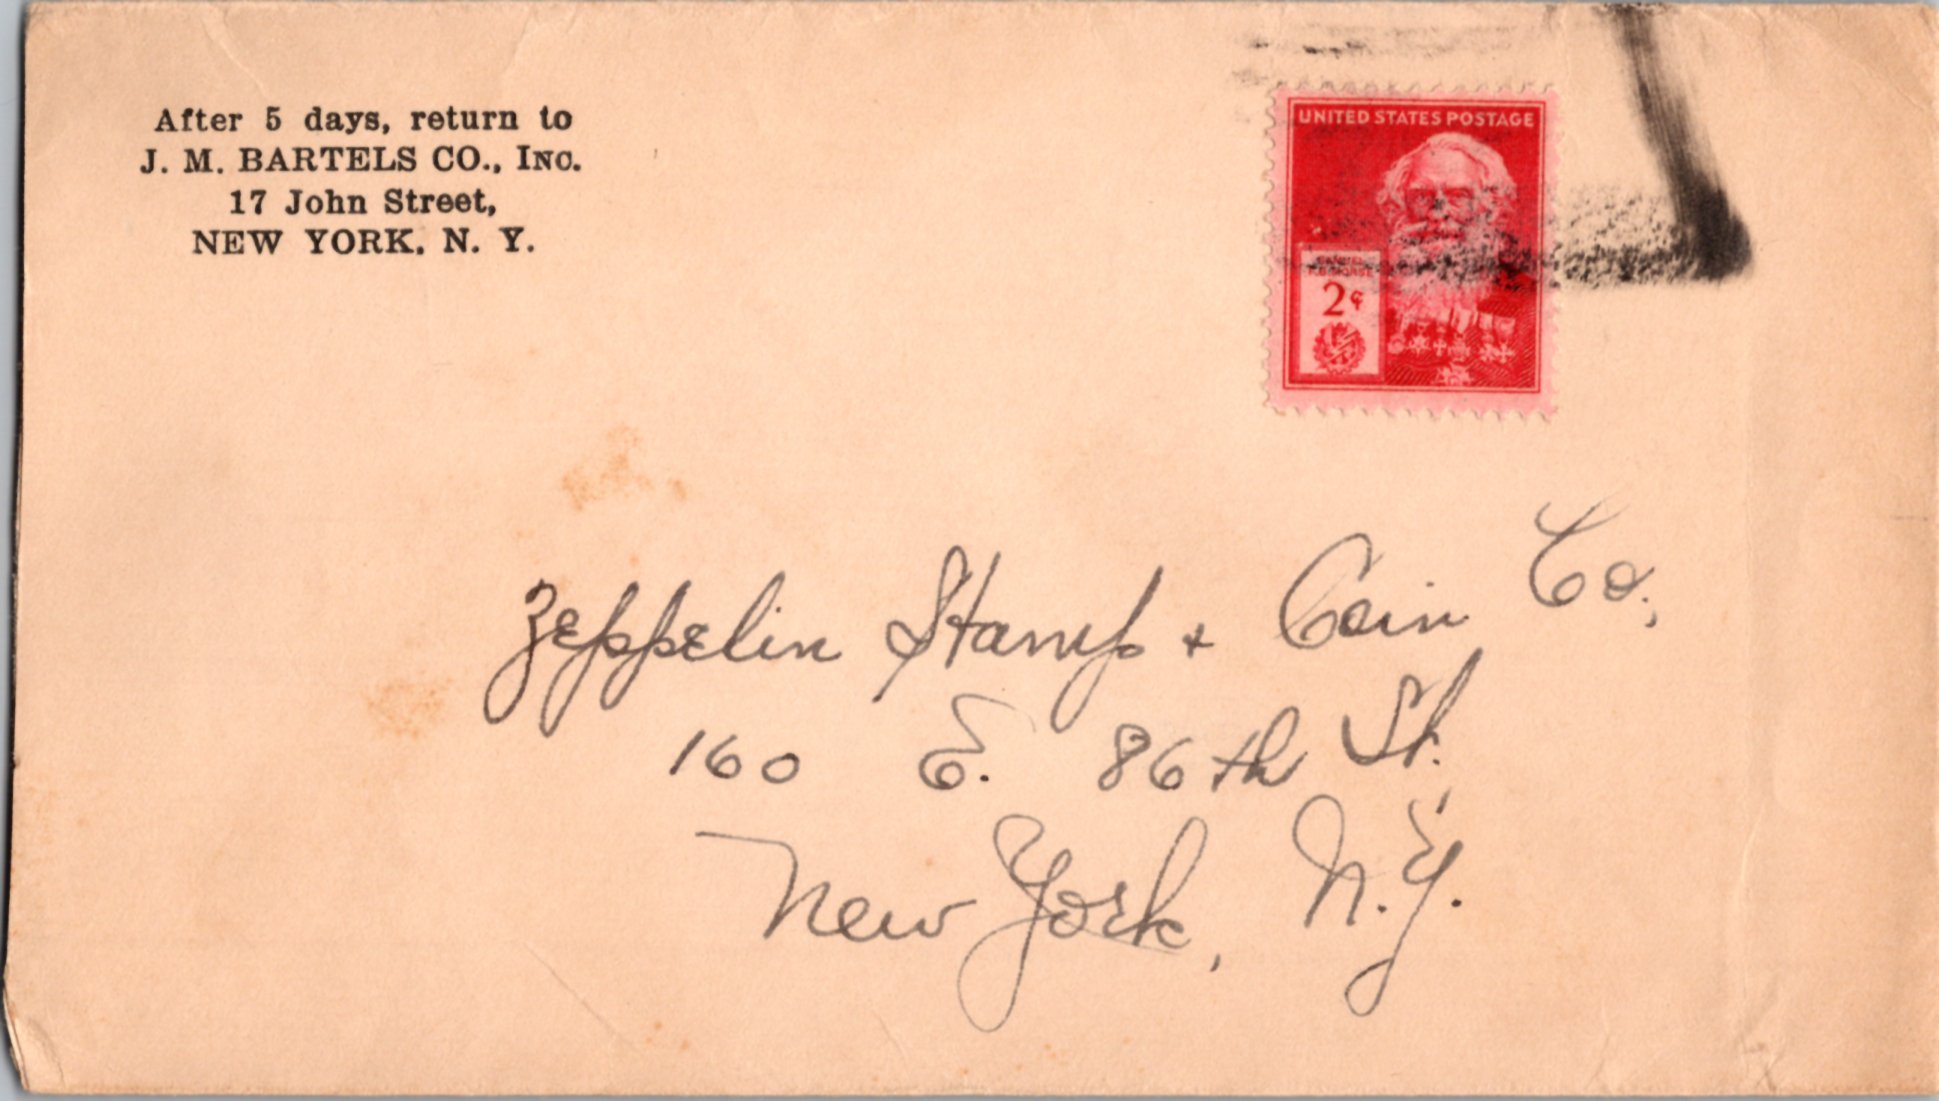 After 5 days, return to
J. M. BARTELS CO., INC.
17 John Street,
NEW YORK, N. Y.
UNITED STATES POSTAGE
2¢
Zeppelin Stamp + Coin Co.,
160 E. 86th St.
New York, N.Y.